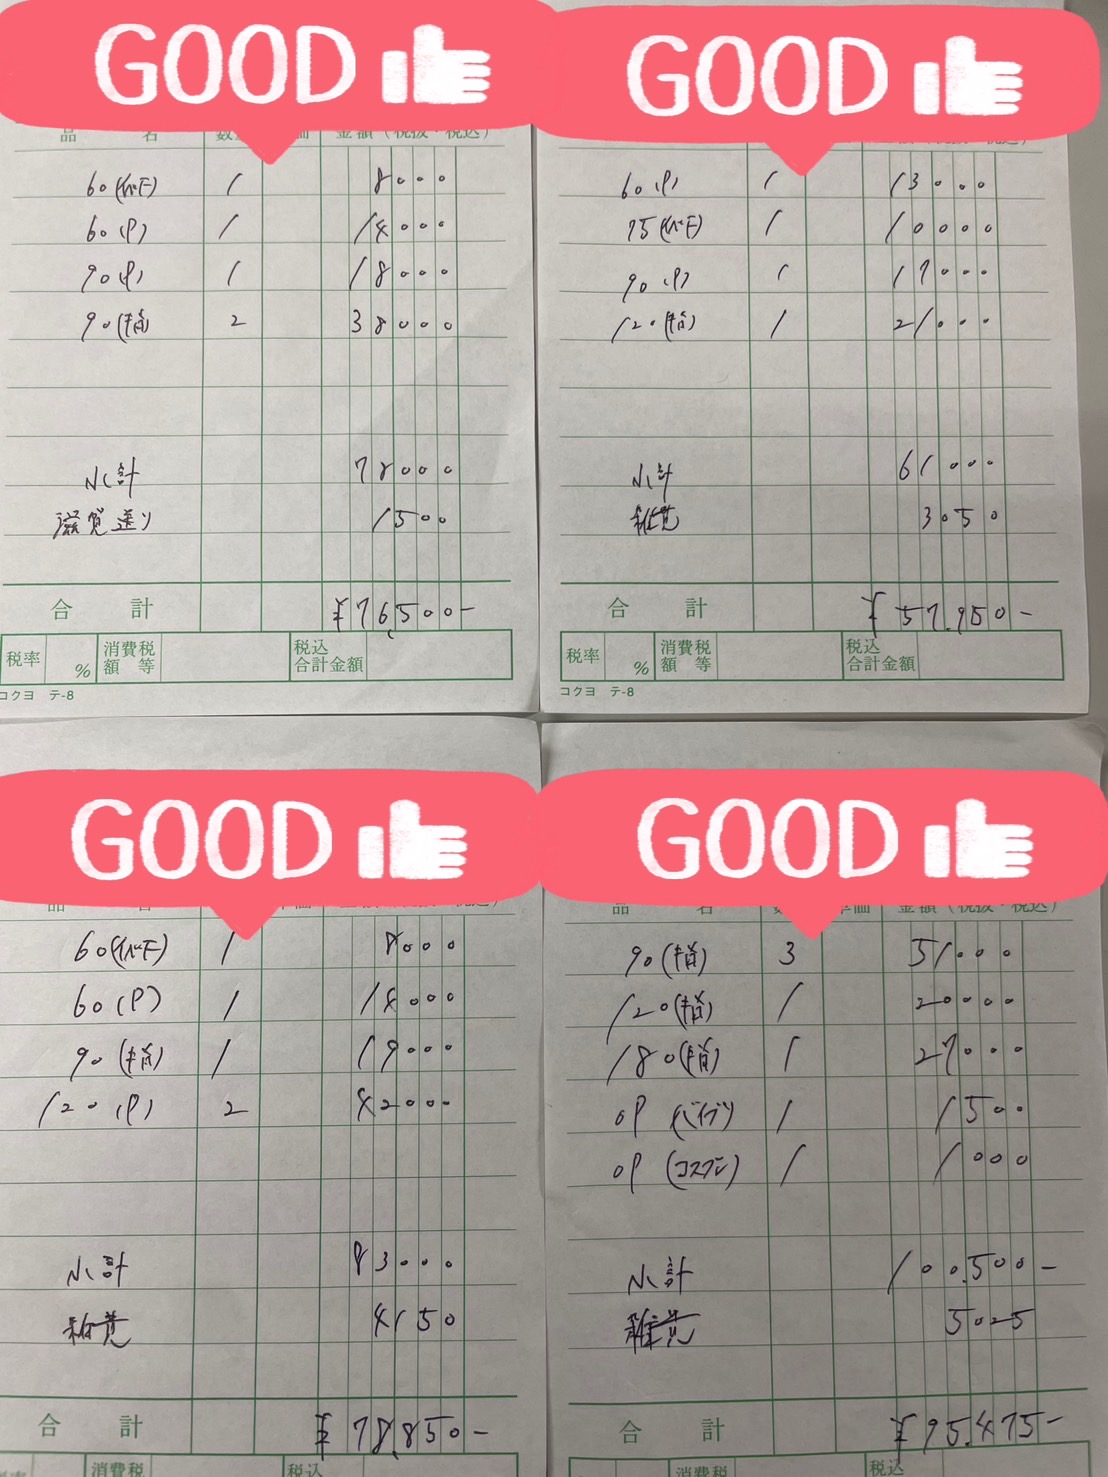 GOOD
品 名 金額(税抜・税込)
60(イベF) 1 8000
60(P) 1 14000
90(P) 1 18000
90(指) 2 38000
小計 78000
送り 1500
合計 ¥76,500-
税率 % 消費税額等 税込合計金額
コクヨ テ-8
GOOD
60(P) 1 13000
75(イベF) 1 10000
90(P) 1 17000
120(指) 1 21000
小計 61000
雑費 3050
合計 ¥57,950-
税率 % 消費税額等 税込合計金額
コクヨ テ-8
GOOD
60(イベF) 1 8000
60(P) 1 14000
90(指) 1 19000
120(P) 2 42000
小計 83000
雑費 4150
合計 ¥78,850-
消費税 税込
GOOD
品 名 単価 金額(税抜・税込)
90(指) 3 51000
120(指) 1 20000
180(指) 1 27000
OP(バイブ) 1 1500
OP(コスプレ) 1 1000
小計 100,500-
雑費 5025
合計 ¥95,475-
消費税 税込